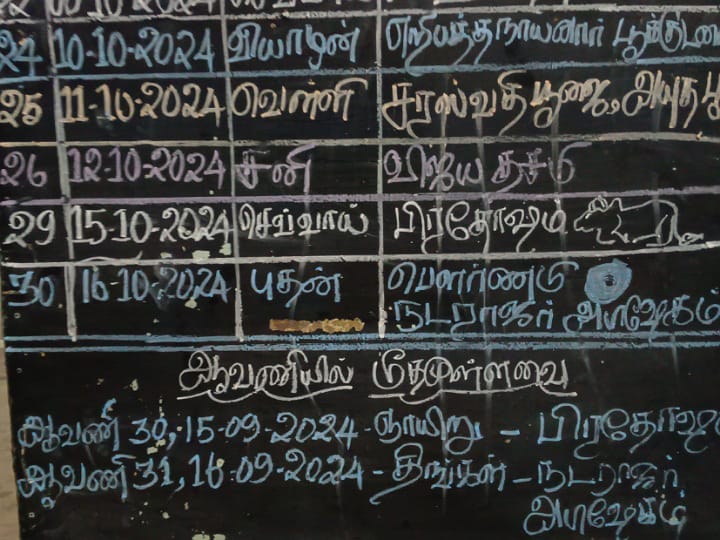 24 10-10-2024 வியாழன் எறிபத்தநாயனார்
25 11-10-2024 வெள்ளி சரஸ்வதி பூஜை, ஆயுத
26 12-10-2024 சனி விஜய தசமி
29 15-10-2024 செவ்வாய் பிரதோஷம்
30 16-10-2024 புதன் பௌர்ணமி
நடராஜர் அபிஷேகம்
ஆவணியில் மீதமுள்ளவை
ஆவணி 30, 15-09-2024 - ஞாயிறு - பிரதோஷம்
ஆவணி 31, 16-09-2024 - திங்கள் - நடராஜர்
அபிஷேகம்